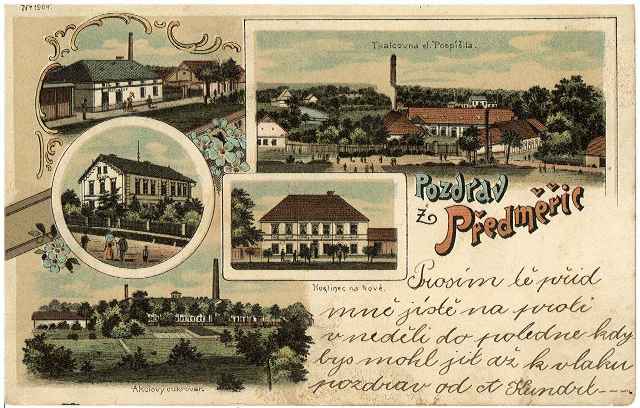 Tkalcovna el. Pospíšila.
Pozdrav
z Předměřic
Hostinec na Nové.
Akciový cukrovar.
Prosím tě přid
mně jistě na proti
v neděli do poledne kdy
bys mohl jít až k vlaku
pozdrav od